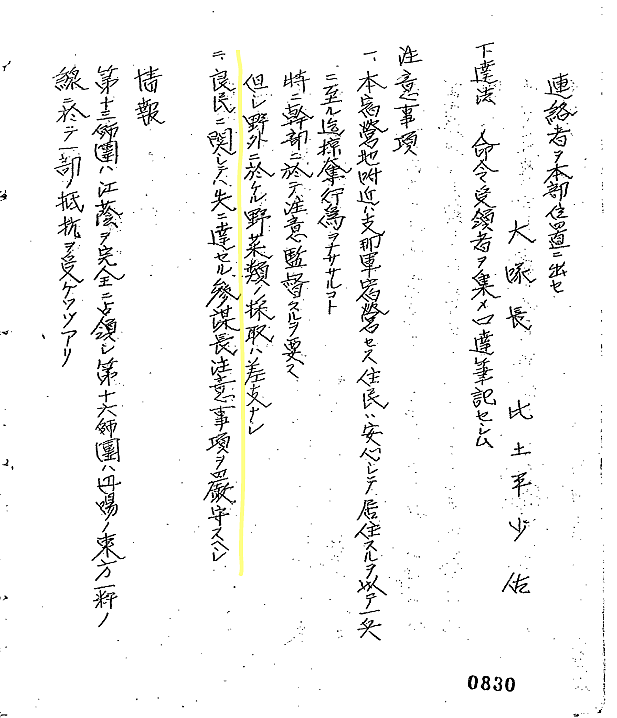 連絡者ヲ本部位置ニ出セ
大隊長 比土平少佐
下達法 命令受領者ヲ集メ口達筆記セシム
注意事項
一、本宿営地附近ハ支那軍宿営セス住民ハ安心シテ居住スルヲ以テ一矢
ニ至ル迄掠奪行為ヲナササルコト
特ニ幹部ニ於テ注意監督スルヲ要ス
但シ野外ニ於ケル野菜類ノ採取ハ差支ナシ
二、良民ニ関シテハ先ニ達セル参謀長注意事項ヲ厳守スヘシ
情報
第十三師團ハ江蔭ヲ完全ニ占領シ第十六師團ハ丹陽ノ東方一粁ノ
線ニ於テ一部ノ抵抗ヲ受ケツツアリ
0830